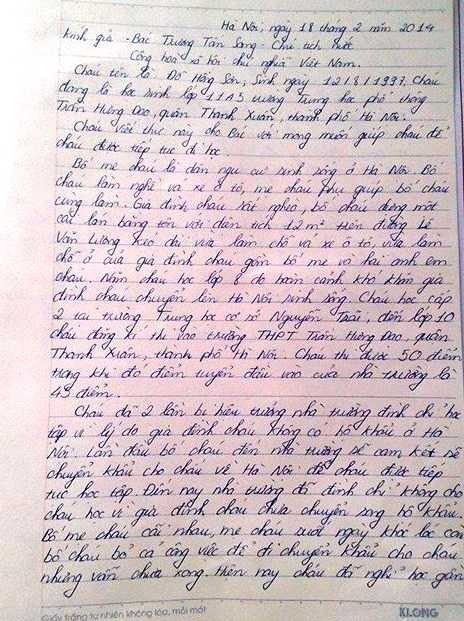 Hà Nội, ngày 18 tháng 2 năm 2014
Kính gửi - Bác Trương Tấn Sang - Chủ tịch nước
Cộng hoà xã hội chủ nghĩa Việt Nam.
Cháu tên là Đỗ Hồng Sơn, Sinh ngày 12/8/1997. Cháu
đang là học sinh lớp 11A5 trường Trung học phổ thông
Trần Hưng Đạo, quận Thanh Xuân, thành phố Hà Nội.
Cháu viết thư này cho Bác với mong muốn giúp cháu để
cháu được tiếp tục đi học.
Bố mẹ cháu là dân ngụ cư sinh sống ở Hà Nội. Bố
cháu làm nghề vá xe ô tô, mẹ cháu phụ giúp bố cháu
cùng làm. Gia đình cháu rất nghèo, bố cháu dựng một
cái lán bằng tôn với diện tích 12 m² trên đường Lê
Văn Lương kéo dài vừa làm chỗ vá xe ô tô, vừa làm
chỗ ở của gia đình cháu gồm bố mẹ và hai anh em
cháu. Năm cháu học lớp 8 do hoàn cảnh khó khăn gia
đình cháu chuyển lên Hà Nội sinh sống. Cháu học cấp
2 tại trường Trung học cơ sở Nguyễn Trãi, đến lớp 10
cháu đăng kí thi vào trường THPT Trần Hưng Đạo, quận
Thanh Xuân, thành phố Hà Nội. Cháu thi được 50 điểm
trong khi đó điểm tuyển đầu vào của nhà trường là
45 điểm.
Cháu đã 2 lần bị hiệu trưởng nhà trường đình chỉ học
tập vì lý do gia đình cháu không có hộ khẩu ở Hà
Nội. Lần đầu bố cháu đến nhà trường để cam kết sẽ
chuyển khẩu cho cháu về Hà Nội để cháu được tiếp
tục học tập. Đến nay nhà trường đã đình chỉ không cho
cháu học vì gia đình cháu chưa chuyển song hộ khẩu.
Bố mẹ cháu cãi nhau, mẹ cháu suốt ngày khóc lóc còn
bố cháu bỏ cả công việc để đi chuyển khẩu cho cháu
nhưng vẫn chưa xong. Hiện nay cháu đã nghỉ học gần
Giấy trắng tự nhiên không lóa, mỏi mắt
KLONG